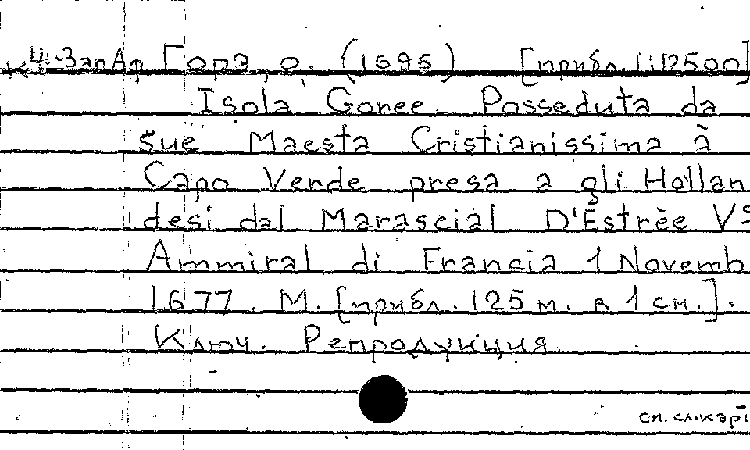 К4-ЗапАф Горэ, о. (1695) [прибл. 1:12500]
Isola Goree. Posseduta da
sue Maesta Cristianissima à
Capo Verde presa a gli Hollan
desi dal Marascial D'Estrèe Vs
Ammiral di Francia 1 Novemb
1677. М. [прибл. 125 м. в 1 см.].
Ключ. Репродукция
сп.